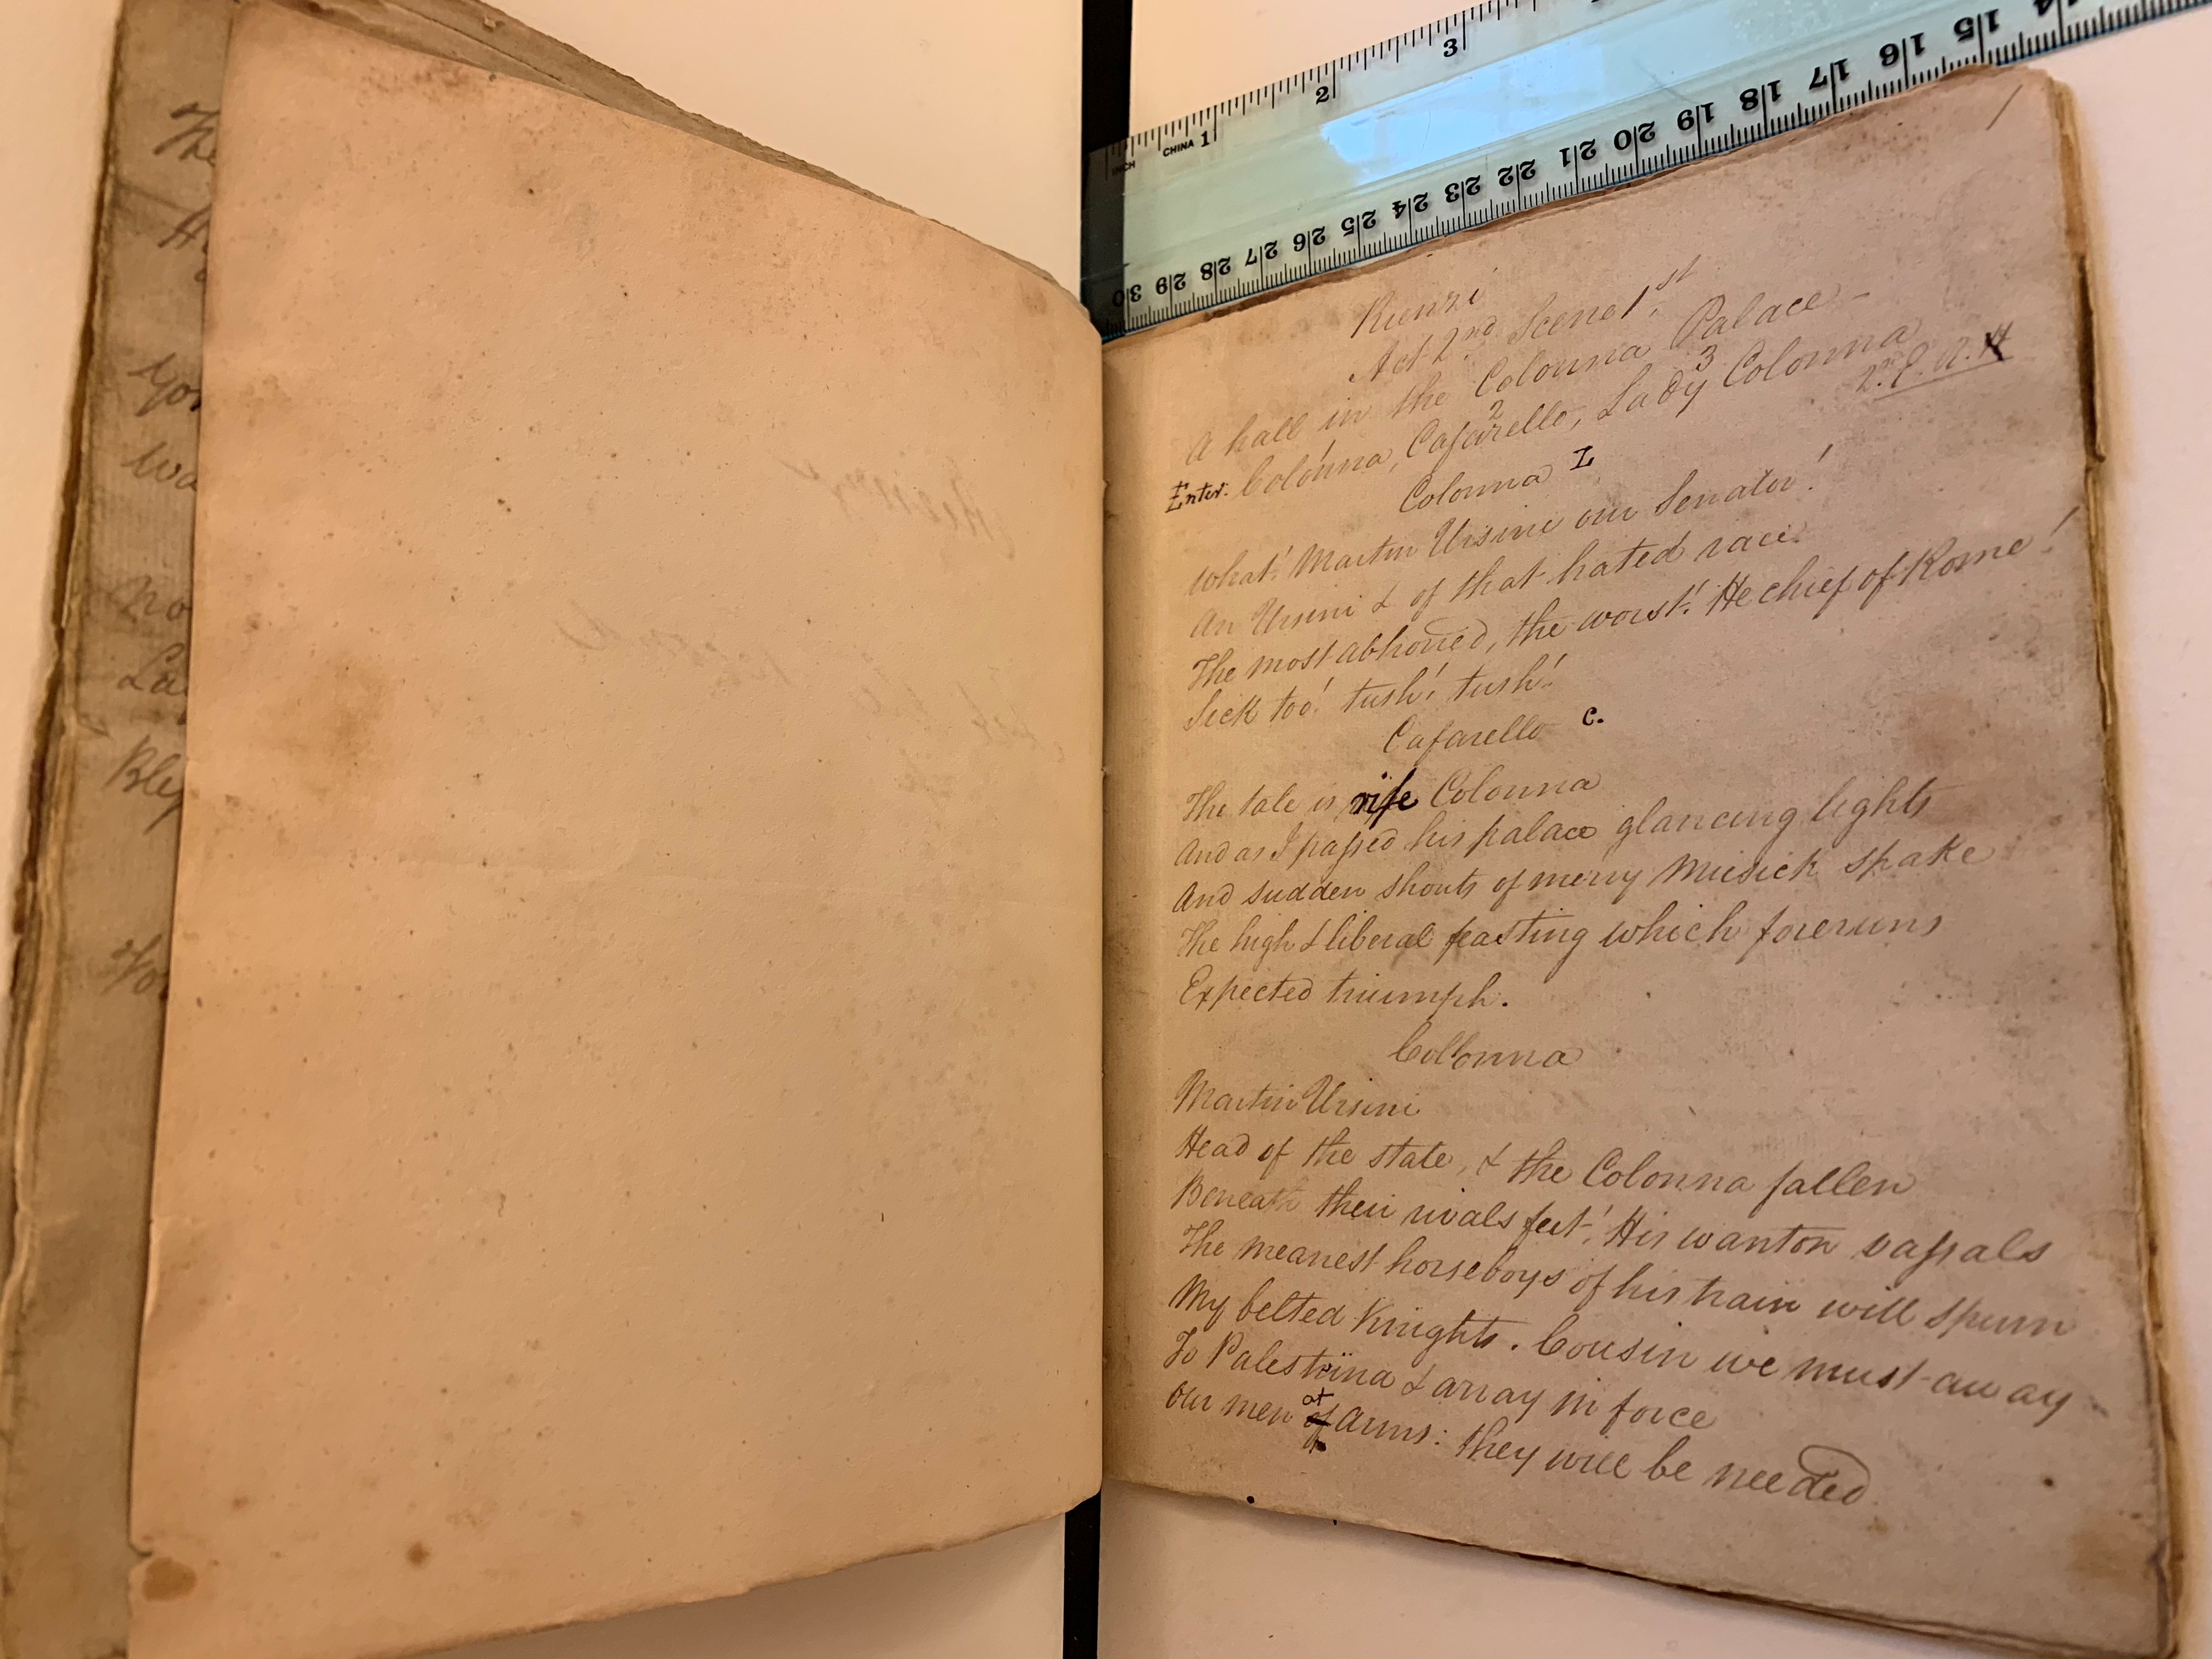 The
H
You
Wa
No
La
You
INCH
CHINA
1
2
3
30 29 28 27 26 25 24 23 22 21 20 19 18 17 16 15 14
1
Rienzi
Act 2nd Scene 1st
A hall in the Colonna Palace —
2 3
Enter. Colonna, Cafarello, Lady Colonna
Colonna
What! Martin Ursini our Senator!
An Ursini & of that hated race!
The most abhorred, the worst! He chief of Rome!
Sick too! tush! tush!
Cafarello C.
The tale is rife Colonna
And as I passed his palace glancing lights
And sudden shouts of merry Musick spake
The high & liberal feasting which foreruns
Expected triumph.
Collonna
Martin Ursini
Head of the state, & the Colonna fallen
Beneath their rivals feet! His wanton vassals
The meanest horseboys of his train will spurn
My belted Knights. Cousin we must away
To Palestrina & array in force
at
Our men of Arms: they will be needed